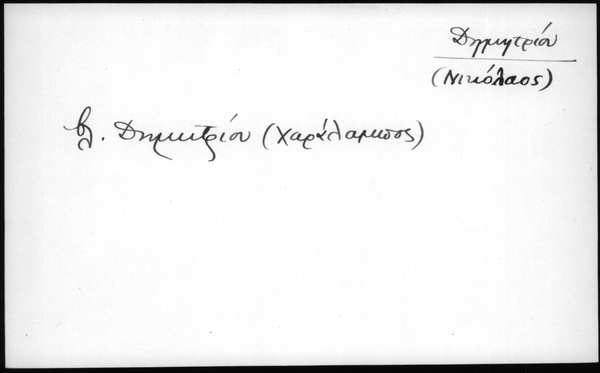 Δημητρίου
(Νικόλαος)
βλ. Δημητρίου (Χαράλαμπος)